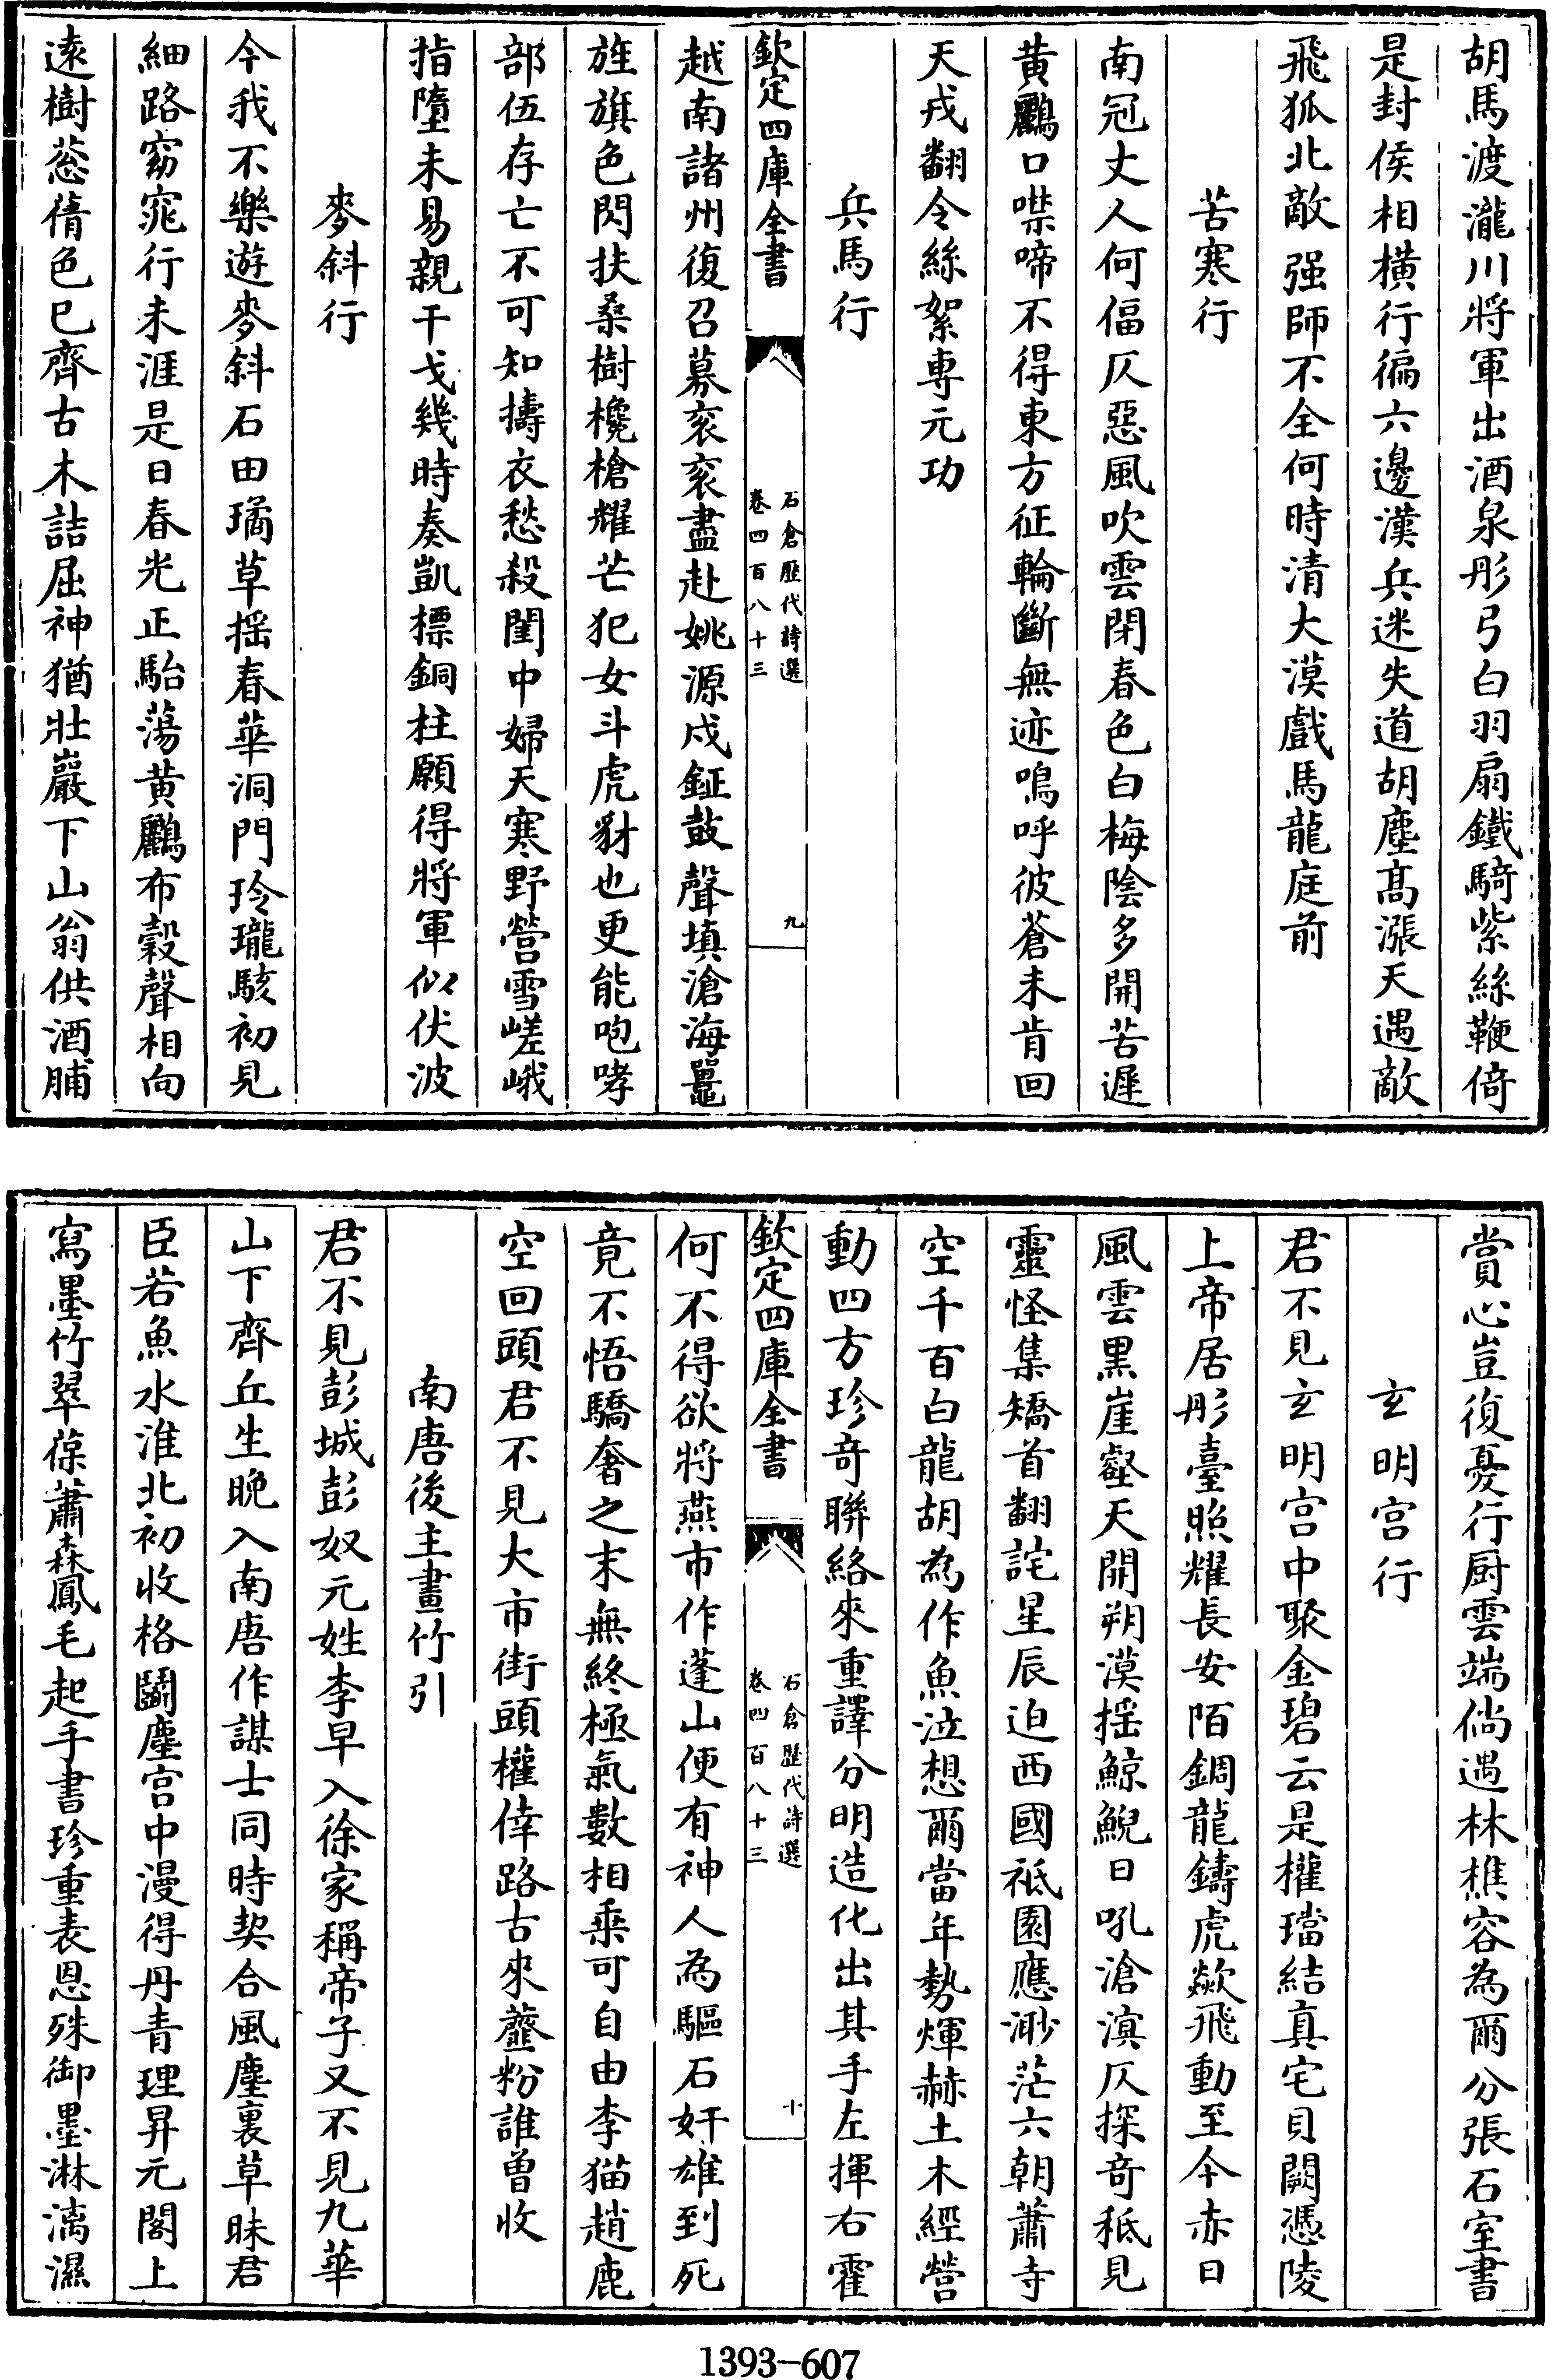 胡馬渡瀧川將軍出酒泉彤弓白羽扇鐵騎紫絲鞭倚
是封侯相横行徧六邊漢兵迷失道胡塵髙漲天遇敵
飛狐北敵强師不全何時清大漠戲馬龍庭前
苦寒行
南冠丈人何偪仄惡風吹雲閉春色白梅陰多開苦遲
黄鸝口噤啼不得東方征輪斷無迹嗚呼彼蒼未肯回
天戎翻令絲絮専元功
兵馬行
欽定四庫全書
石倉歴代詩選
卷四百八十三
九
越南諸州復召募衮衮盡赴姚源戍鉦鼓聲填滄海鼉
旌旗色閃扶桑樹欃槍耀芒犯女斗虎豺也更能咆哮
部伍存亡不可知擣衣愁殺閨中婦天寒野營雪嵯峨
指墮未易親干戈幾時奏凱標銅柱願得將軍似伏波
麥斜行
今我不樂遊麥斜石田璚草揺春華洞門玲瓏駭初見
細路窈窕行未涯是日春光正駘蕩黄鸝布榖聲相向
逺樹葱蒨色已齊古木詰屈神猶壯巖下山翁供酒脯
賞心豈復憂行厨雲端倘遇林樵容為爾分張石室書
玄明宫行
君不見玄明宫中聚金碧云是權璫結真宅貝闕憑陵
上帝居彤臺照耀長安陌錭龍鑄虎歘飛動至今赤日
風雲黒崖壑天開朔漠揺鯨鯢日吼滄溟仄探奇秪見
靈怪集矯首翻詫星辰迫西國祗園應渺茫六朝蕭寺
空千百白龍胡為作魚泣想爾當年勢煇赫土木經營
動四方珍奇聨絡來重譯分明造化出其手左揮右霍
欽定四庫全書
石倉歴代詩選
卷四百八十三
十
何不得欲將燕市作蓬山便有神人為驅石奸雄到死
竟不悟驕奢之末無終極氣數相乗可自由李猫趙鹿
空回頭君不見大市街頭權倖路古來虀粉誰曽收
南唐後主畫竹引
君不見彭城彭奴元姓李早入徐家稱帝子又不見九華
山下齊丘生晩入南唐作謀士同時契合風塵裏草昧君
臣若魚水淮北初收格鬭塵宫中漫得丹青理昇元閣上
寫墨竹翠葆蕭森鳳毛起手書珍重表恩殊御墨淋漓濕
1393-607